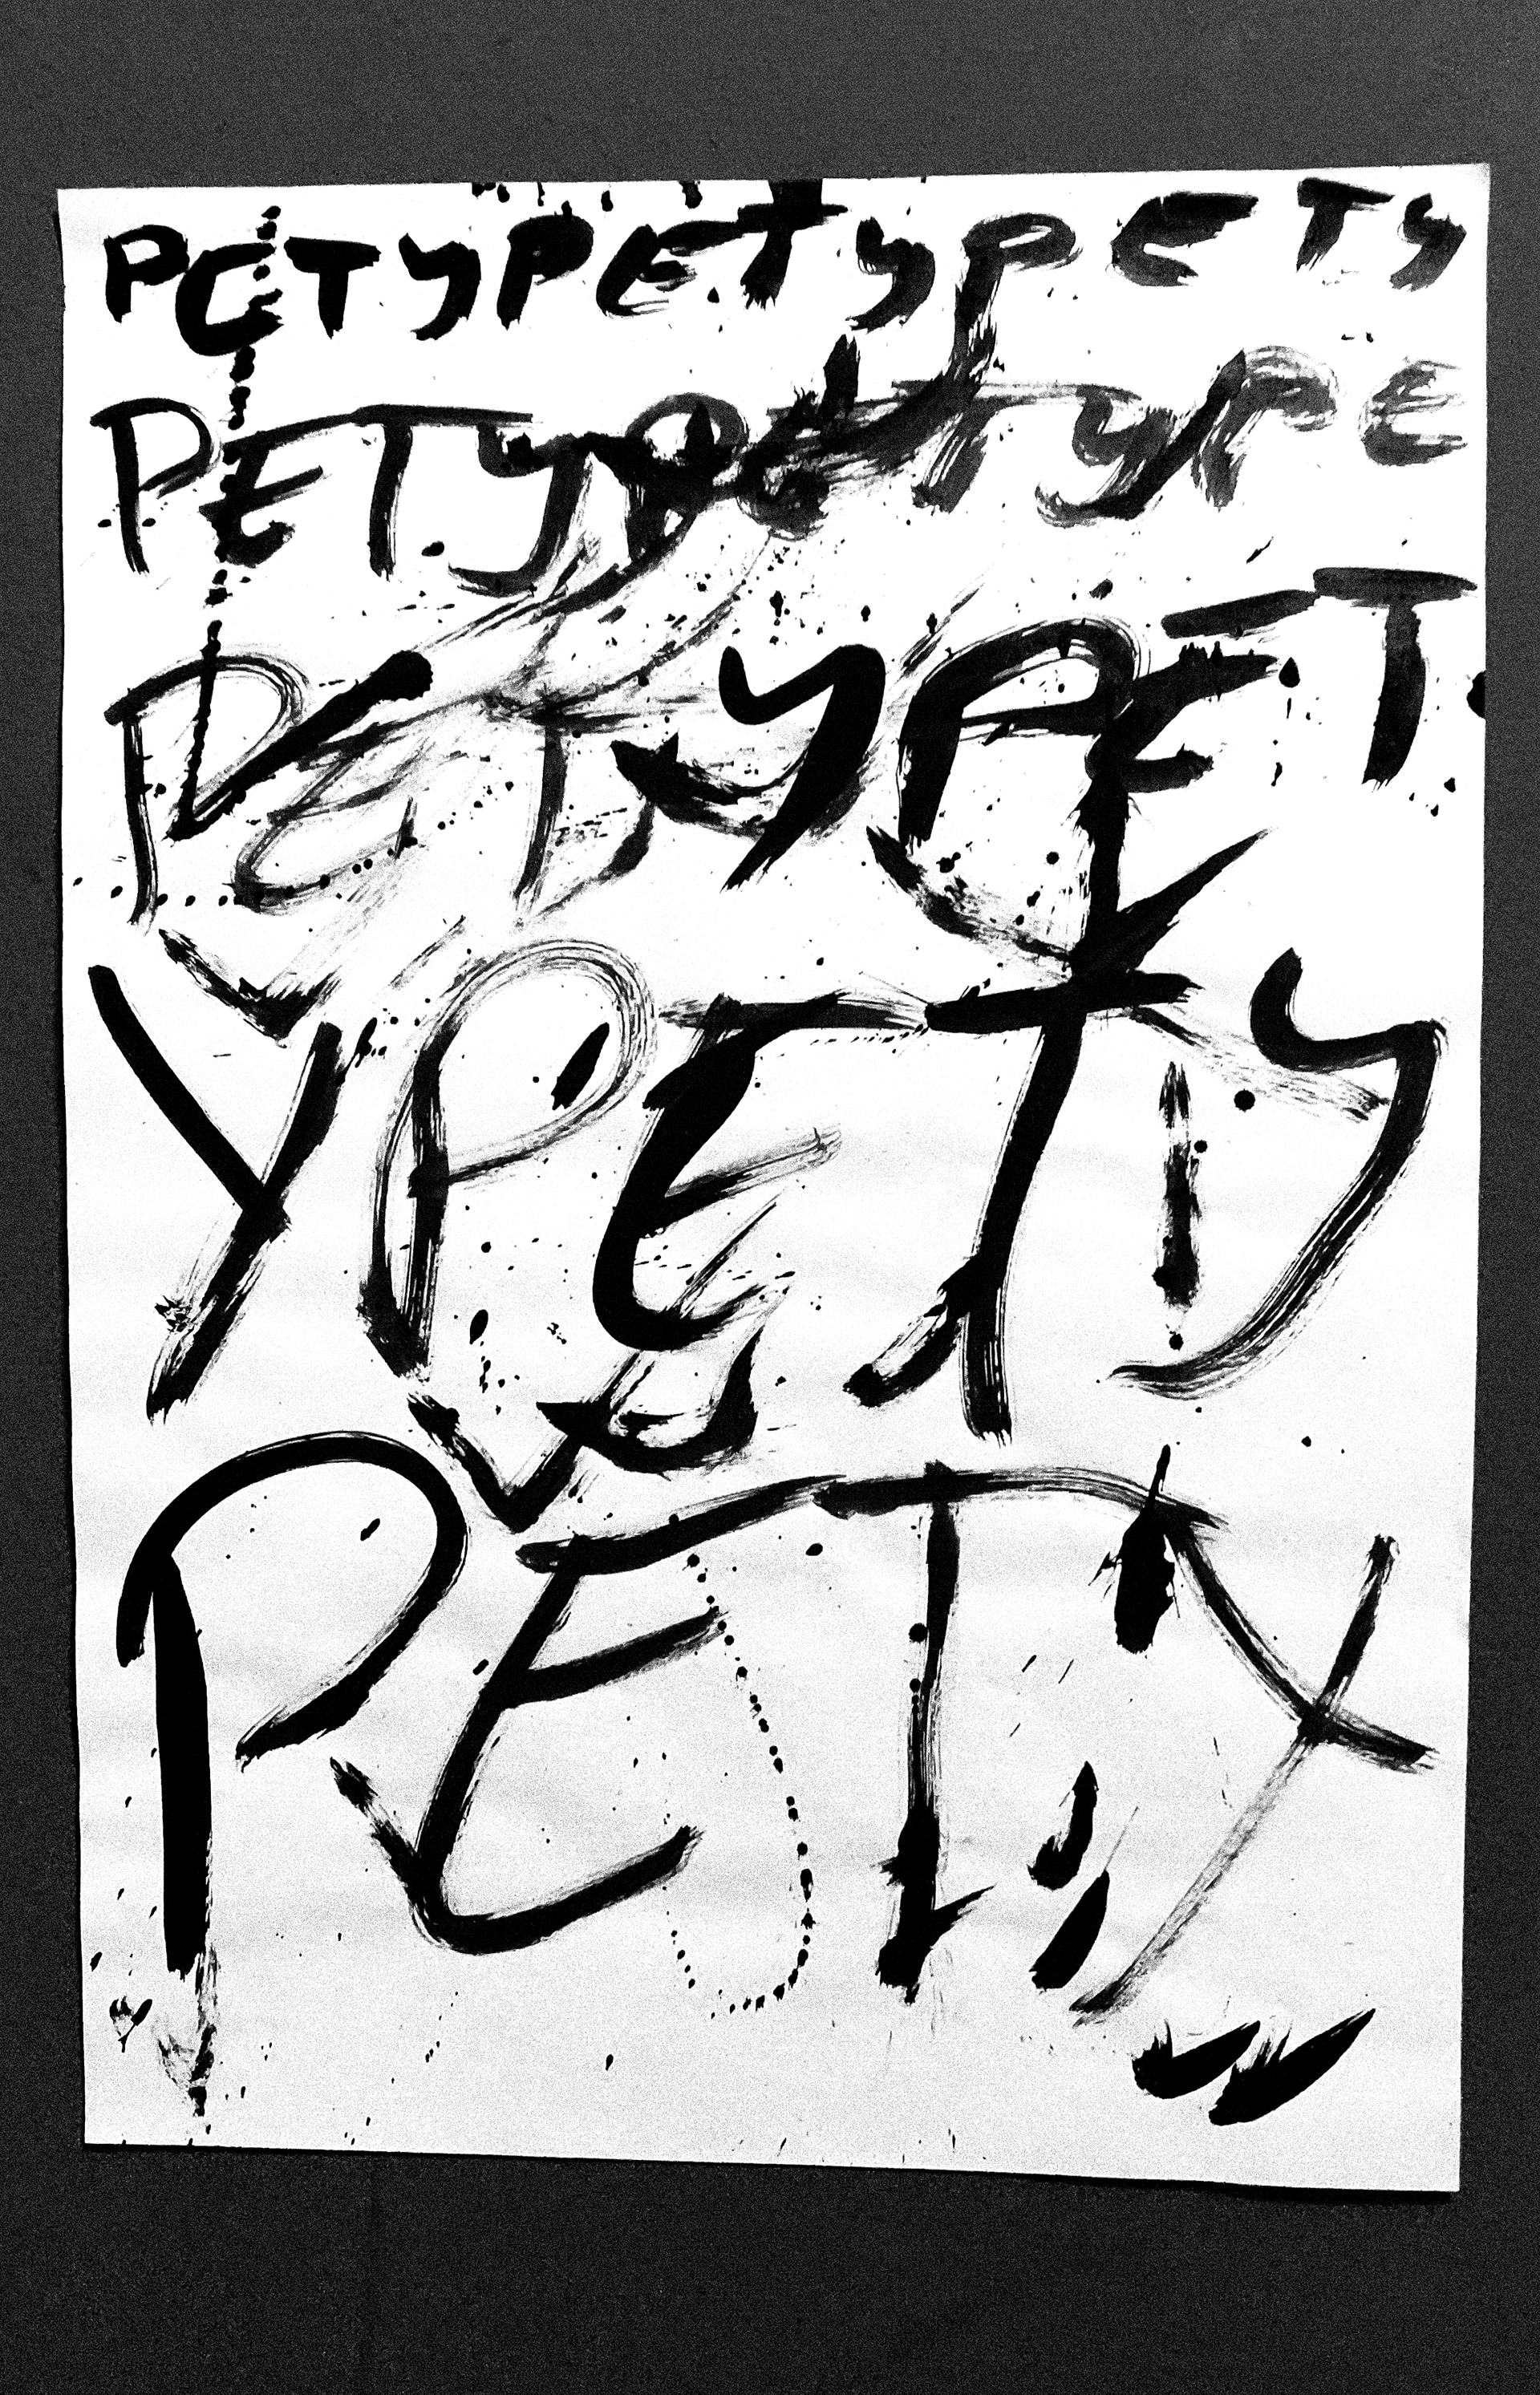 PETYPETYPETY
PETYPETYPE
PETYPET
YPETY
PETY